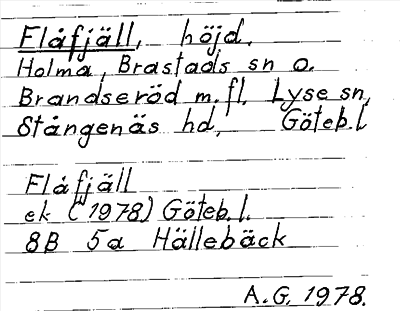 Flåfjäll, höjd.
Holma, Brastads sn o.
Brandseröd m.fl. Lyse sn,
Stångenäs hd, Göteb.l
Flåfjäll
ek (1978) Göteb.l.
8B 5a Hällebäck
A.G. 1978.